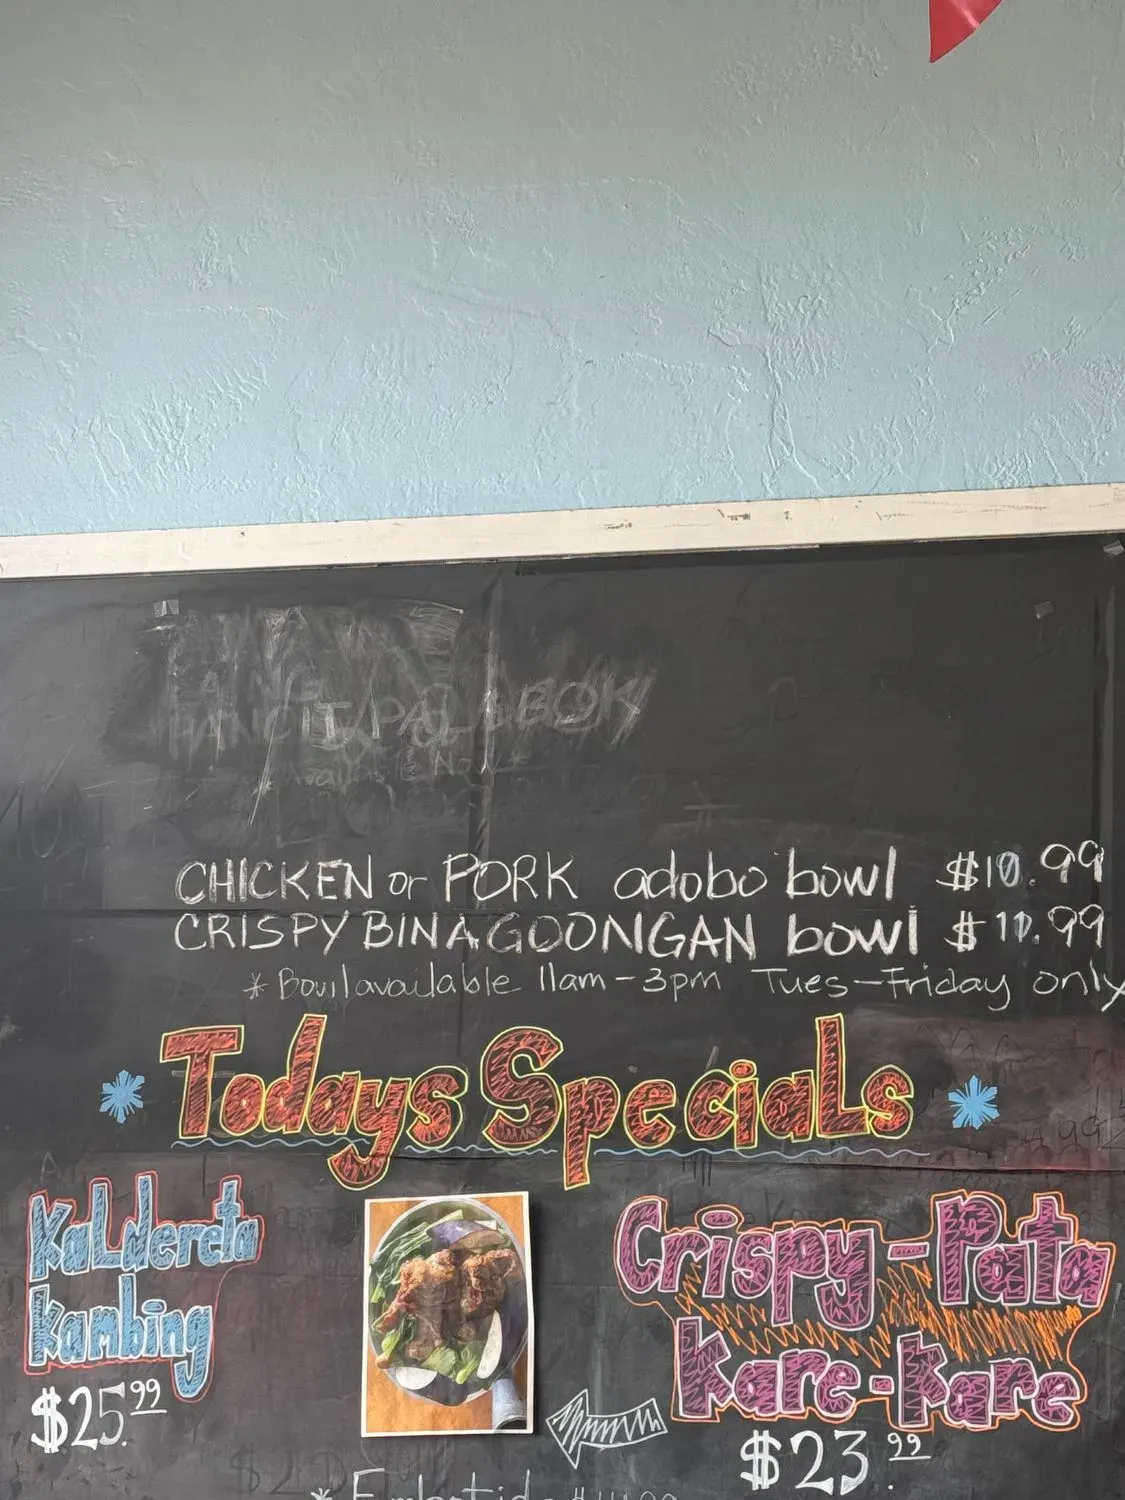 PANCIT PALABOK
CHICKEN or PORK adobo bowl $10.99
CRISPY BINAGOONGAN bowl $11.99
* Bowl available 11am-3pm Tues-Friday only
Todays Specials
Kaldereta
kambing
$25.99
Crispy-Pata
kare-kare
$23.99